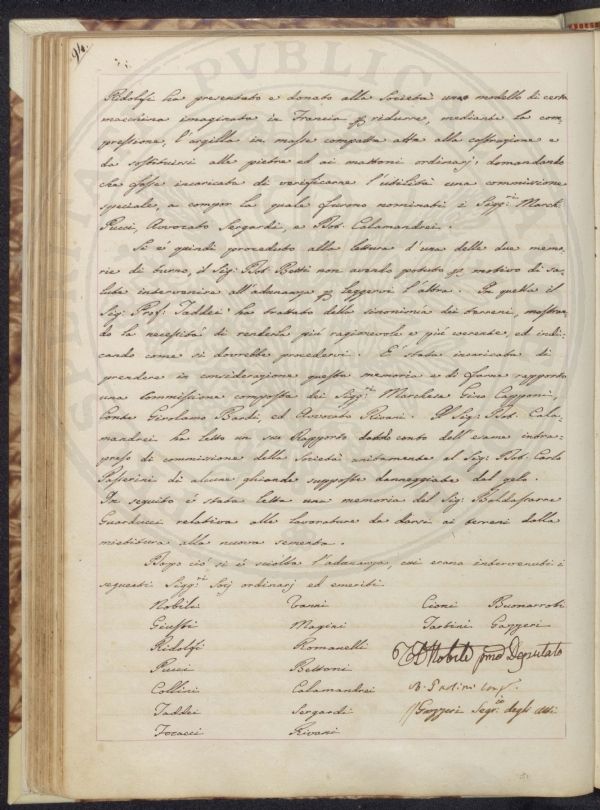 94.
Ridolfi ha presentato e donato alla Società uno modello di certa
macchina imaginata in Francia p ridurre, mediante la com
pressione, l'argilla in masse compatta atta alla costruzione e
da sostituirsi alle pietre ed ai mattoni ordinarj, domandando
che fosse incaricata di verificarne l'utilità una commissione
speciale, a compor la quale furono nominati i Sigg.ri March.
Pucci, Avvocato Sergardi, e Dot. Calamandrei.
Si è quindi proceduto alla lettura d'una delle due memo-
rie di turno, il Sig. Dot. Betti non avendo potuto p motivo di sa-
lute intervenire all'adunanza p leggervi l'altra. In quella il
Sig. Prof. Taddei ha trattato della sinonimia dei terreni, mostran
do la necessità di renderla più ragionevole e più coerente, ed indi-
cando come si dovrebbe procedervi. È stata incaricata di
prendere in considerazione questa memoria e di farne rapporto
una Commissione composta dei Sigg.ri Marchese Gino Capponi,
Conte Girolamo Bardi, ed Avvocato Rivani. Il Sig. Dot. Cala-
mandrei ha letto un suo Rapporto dando conto dell'esame intra-
preso di commissione della Società unitamente al Sig. Dot. Carlo
Passerini di alcune ghiande supposte danneggiate dal gelo.
In seguito è stata letta una memoria del Sig. Baldassarre
Guarducci relativa alle lavorature da darsi ai terreni dalla
mietitura alla nuova sementa.
Dopo ciò si è sciolta l'adunanza, cui erano intervenuti i
seguenti Sigg.ri Socj ordinarj ed emeriti
Nobili Vanni Cioni Buonarroti
Giusti Magini Tartini Gazzeri
Ridolfi Romanelli
Pucci Bettoni D Nobili pmo Deputato
Collini Calamandrei
Taddei Sergardi Gazzeri Segr.io degli Atti
Focacci Rivani